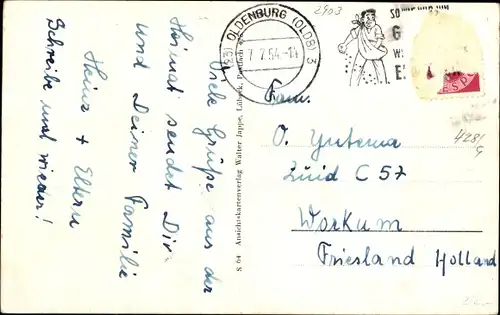 Viele Grüße aus der
Heimat sendet Dir
und Deiner Familie
Heinz + Eltern
Schreibe mal wieder!
S 64 Ansichtskartenverlag Walter Jappe, Lübeck, Postfach
(23) OLDENBURG (OLDB) 3
7.2.54.-14
2903
SO
G
W
E
SP
Fam.
O. Yntema
Zuid C 57
Workum
Friesland Holland
428/
G